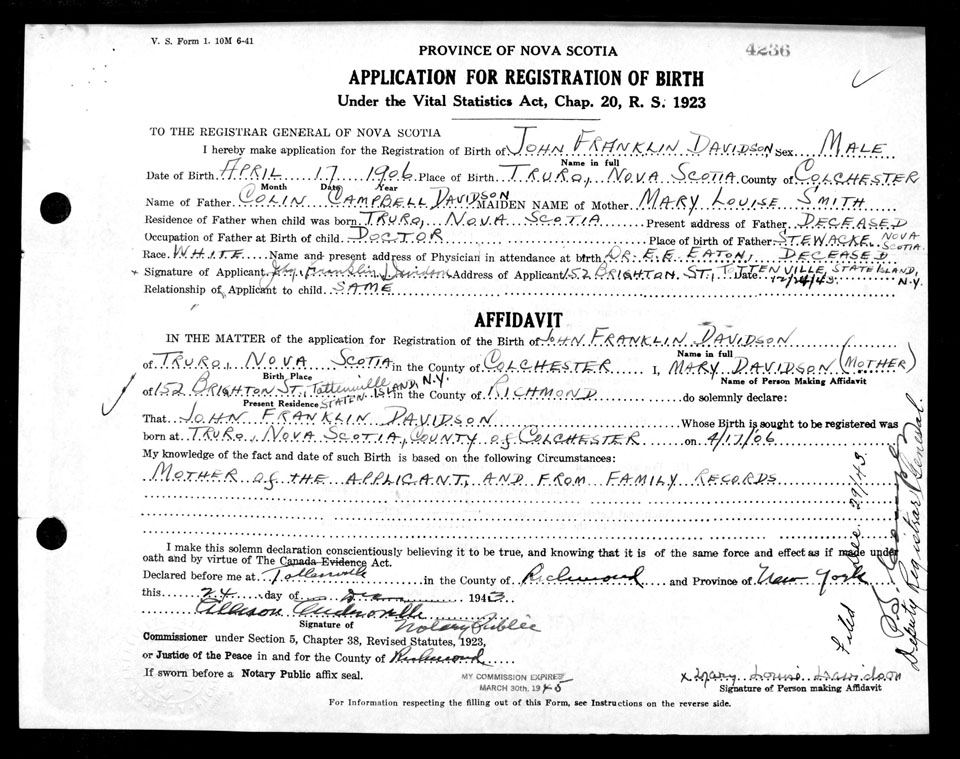 V. S. Form 1. 10M 6-41
4236
PROVINCE OF NOVA SCOTIA
APPLICATION FOR REGISTRATION OF BIRTH
Under the Vital Statistics Act, Chap. 20, R. S. 1923
TO THE REGISTRAR GENERAL OF NOVA SCOTIA
I hereby make application for the Registration of Birth of JOHN FRANKLIN DAVIDSON, Sex MALE
Name in full
Date of Birth APRIL 17 1906 Place of Birth TRURO, NOVA SCOTIA County of COLCHESTER
Month Date Year
Name of Father COLIN CAMPBELL DAVIDSON MAIDEN NAME of Mother MARY LOUISE SMITH
Residence of Father when child was born TRURO, NOVA SCOTIA Present address of Father DECEASED
Occupation of Father at Birth of child DOCTOR Place of birth of Father STEWACKE NOVA SCOTIA
Race WHITE Name and present address of Physician in attendance at birth DR. E.E. EATON, DECEASED
x Signature of Applicant John Franklin Davidson Address of Applicant 152 BRIGHTON ST, TOTTENVILLE, STATE ISLAND, N.Y. Date 12/24/43
Relationship of Applicant to child SAME
AFFIDAVIT
IN THE MATTER of the application for Registration of the Birth of JOHN FRANKLIN DAVIDSON
Name in full
of TRURO, NOVA SCOTIA in the County of COLCHESTER I, MARY DAVIDSON (MOTHER)
Birth Place Name of Person Making Affidavit
of 152 BRIGHTON ST, Tottenville STATEN ISLAND, N.Y. in the County of RICHMOND do solemnly declare:
Present Residence
That JOHN FRANKLIN DAVIDSON Whose Birth is sought to be registered was
born at TRURO, NOVA SCOTIA, COUNTY of COLCHESTER on 4/17/06
My knowledge of the fact and date of such Birth is based on the following Circumstances:
MOTHER of THE APPLICANT, AND FROM FAMILY RECORDS
I make this solemn declaration conscientiously believing it to be true, and knowing that it is of the same force and effect as if made under
oath and by virtue of The Canada Evidence Act.
Declared before me at Tottenville in the County of Richmond and Province of New York
this 24 day of Dec 1943
Signature of Notary Public
Commissioner under Section 5, Chapter 38, Revised Statutes, 1923,
or Justice of the Peace in and for the County of Richmond
If sworn before a Notary Public affix seal.
MY COMMISSION EXPIRES
MARCH 30th. 1945
x Mary Louise Davidson
Signature of Person making Affidavit
For Information respecting the filling out of this Form, see Instructions on the reverse side.
Filed Dec 29/43
Deputy Registrar General